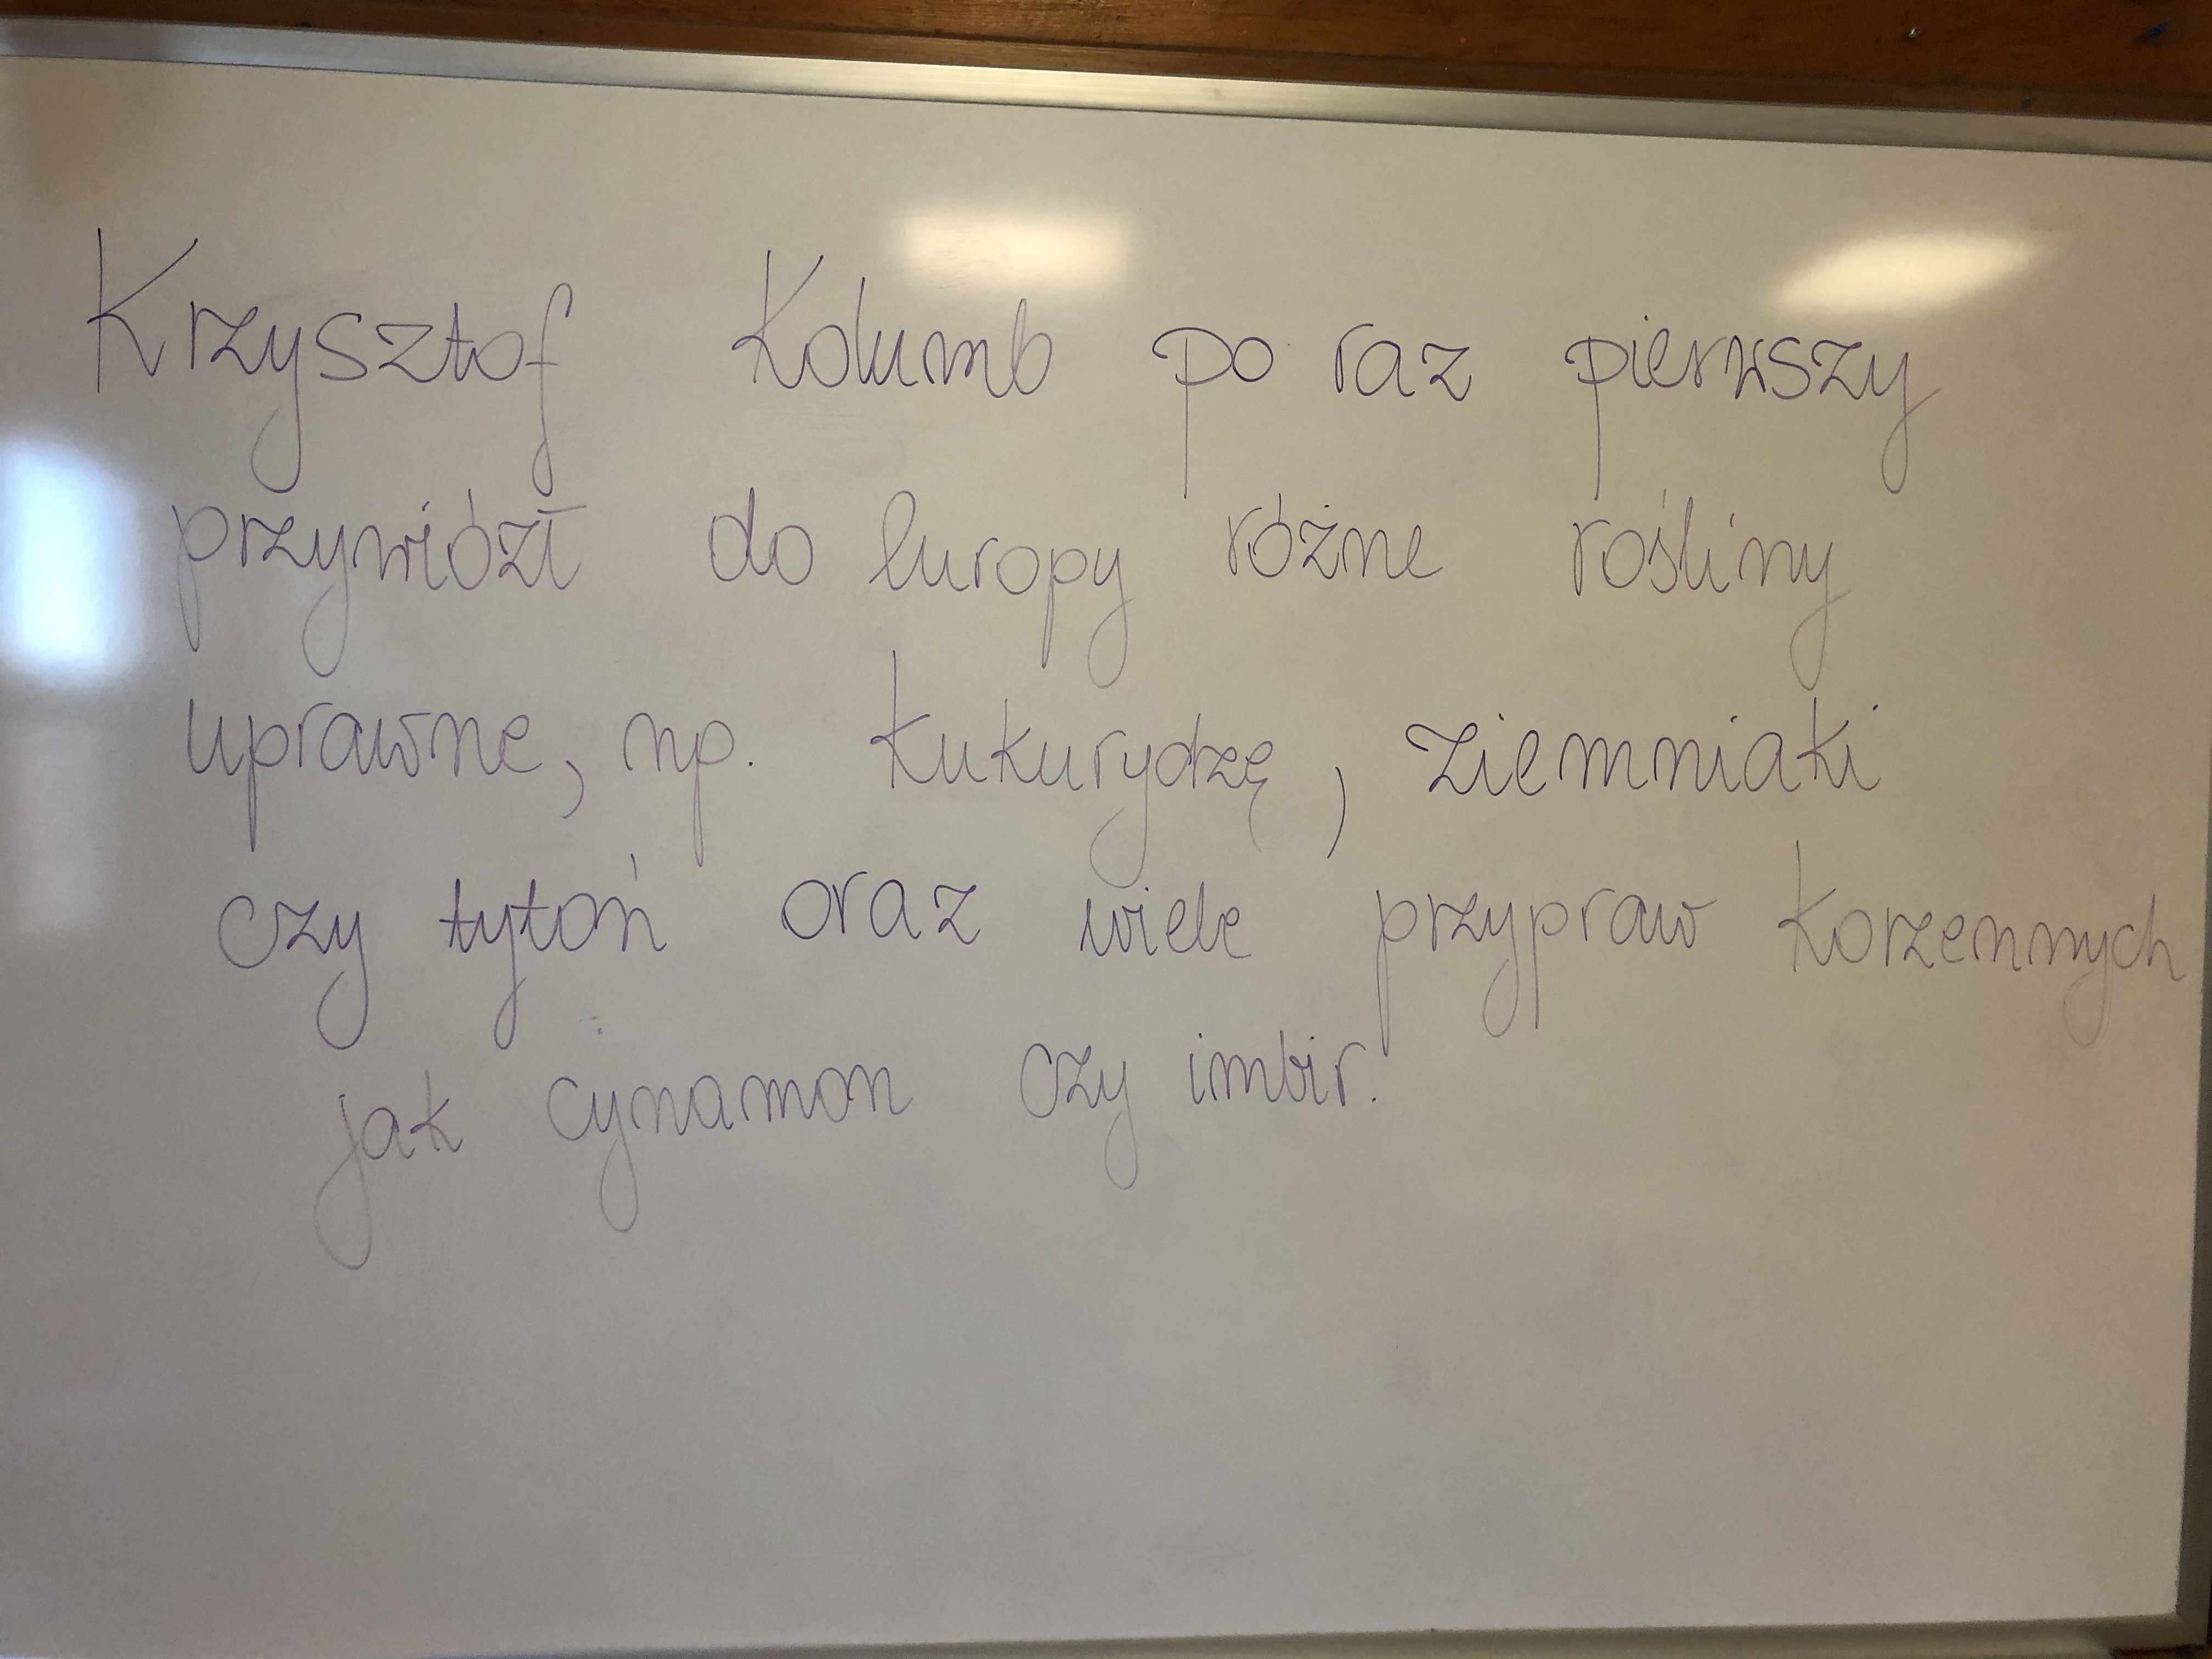 Krzysztof Kolumb po raz pierwszy
przywiózł do Europy różne rośliny
uprawne, np. kukurydzę, ziemniaki
czy tytoń oraz wiele przypraw korzennych
jak cynamon czy imbir.